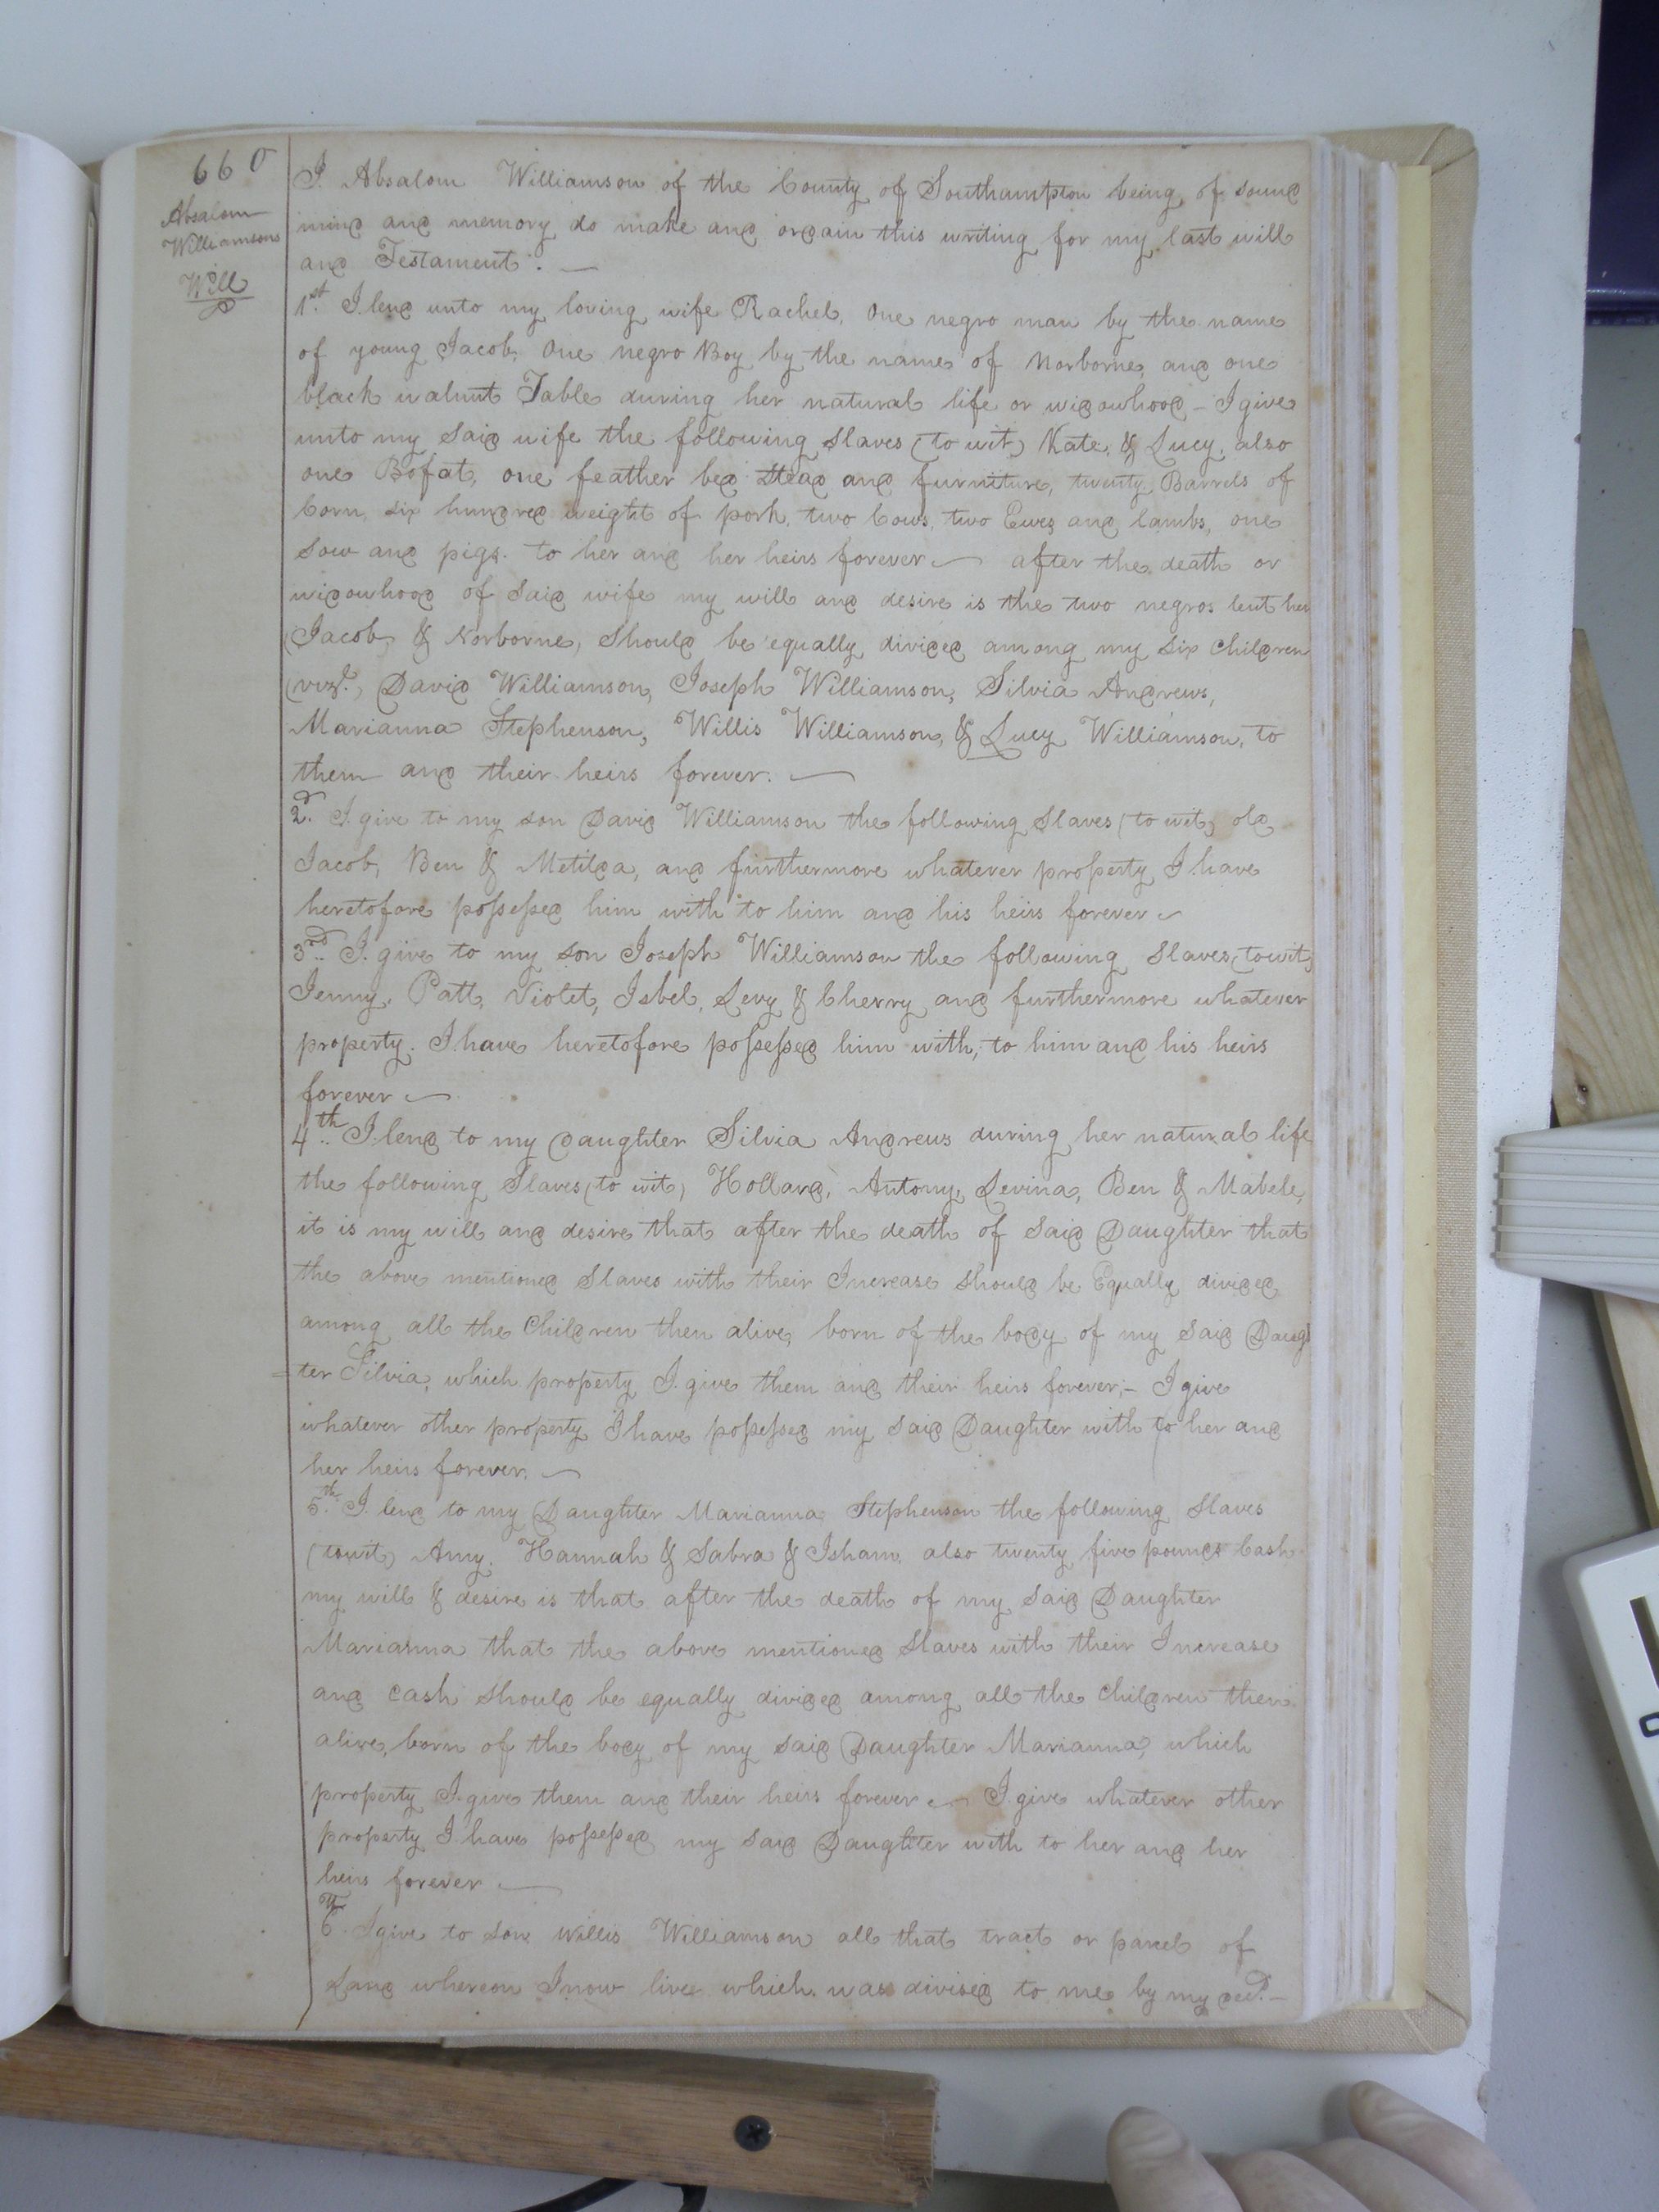 660
Absalom
Williamsons
Will
I. Absalom Williamson of the County of Southampton being of sound
mind and memory do make and ordain this writing for my last will
and Testament. —
1st. I lend unto my loving wife Rachel, One negro man by the name
of young Jacob, One negro Boy by the name of Norborne, and one
black walnut Table during her natural life or widowhood – I give
unto my said wife the following Slaves (to wit) Kate, & Lucy, also
one Bofat, one feather bed Stead and furniture, twenty Barrels of
Corn, six hundred weight of pork, two Cows, two Ewes and lambs, one
Sow and pigs. to her and her heirs forever — after the death or
widowhood of said wife my will and desire is the two negros lent her
(Jacob & Norborne, Should be equally divided among my six Children
(vizt., David Williamson, Joseph Williamson, Silvia Andrews,
Marianna Stephenson, Willis Williamson, & Lucy Williamson, to
them and their heirs forever. —
2d. I give to my son David Williamson the following Slaves (to wit) old
Jacob, Ben & Metilda, and furthermore whatever property I have
heretofore possessed him with to him and his heirs forever —
3rd. I. give to my son Joseph Williamson the following Slaves (towit)
Jenny, Patt, Violet, Isbel, Levy & Cherry and furthermore whatever
property. I have heretofore possessed him with, to him and his heirs
forever —
4th. I lend to my daughter Silvia Andrews during her natural life
the following Slaves (to wit) Hollard, Antony, Levina, Ben & Mabele,
it is my will and desire that after the death of said Daughter that
the above mentioned Slaves with their Increase should be Equally divided
among all the Children then alive, born of the body of my said Daugh
=ter Silvia, which property I give them and their heirs forever;– I give
whatever other property I have possessed my said Daughter with to her and
her heirs forever. —
5th. I. lend to my Daughter Marianna Stephenson the following Slaves
(towit) Amy. Hannah & Sabra & Isham, also twenty five pounds Cash
my will & desire is that after the death of my said Daughter
Marianna that the above mentioned Slaves with their Increase
and Cash should be equally divided among all the Children then
alive, born of the body of my said Daughter Marianna, which
property I give them and their heirs forever — I give whatever other
property I have possessed my said Daughter with to her and her
heirs forever —
6th. I give to son Willis Williamson all that tract or parcel of
Land whereon I now live which was divised to me by my decd. –